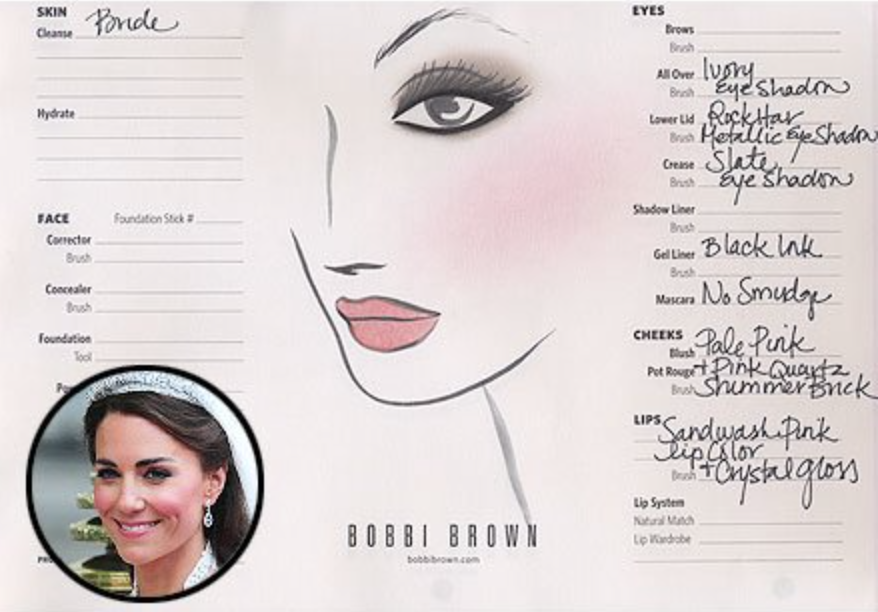 SKIN
Cleanse Bride
Hydrate
FACE Foundation Stick #
Corrector
Brush
Concealer
Brush
Foundation
Tool
BOBBI BROWN
bobbibrown.com
EYES
Brows
Brush
All Over Ivory
Brush Eye Shadow
Lower Lid Rockstar
Brush Metallic Eye Shadow
Crease Slate
Brush Eye Shadow
Shadow Liner
Brush
Gel Liner Black Ink
Brush
Mascara No Smudge
CHEEKS
Blush Pale Pink
Pot Rouge + Pink Quartz
Brush Shimmer Brick
LIPS Sandwash Pink
Lip Color
Brush + Crystal gloss
Lip System
Natural Match
Lip Wardrobe